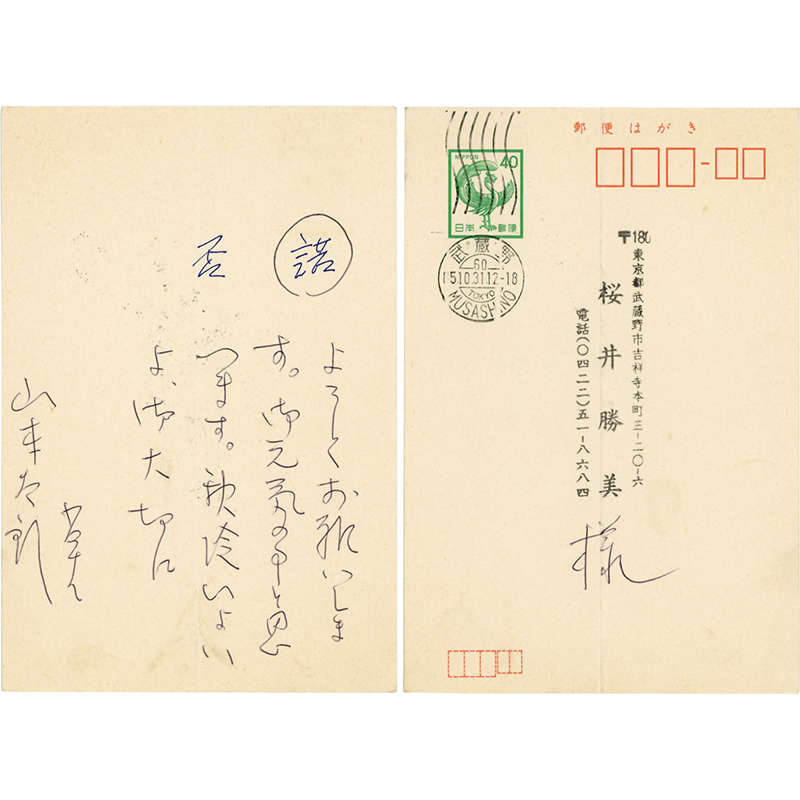 諾
否
よろしくお願いしま
す。御元気の事と思
います。秋冷いよい
よ、御大切に
草々
山本太郎
郵便はがき
NIPPON 40
日本郵便
武蔵野
60.
10.31.12-18
TOKYO
MUSASHINO
〒180
東京都武蔵野市吉祥寺本町三-二〇-六
桜井勝美様
電話(〇四二二)五一-八六八四